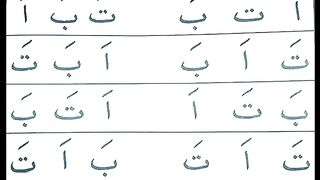 اَ تَ بَ تَ بَ اَ
تَ اَ بَ اَ بَ تَ
بَ تَ اَ اَ تَ بَ
تَ اَ تَ بَ اَ تَ